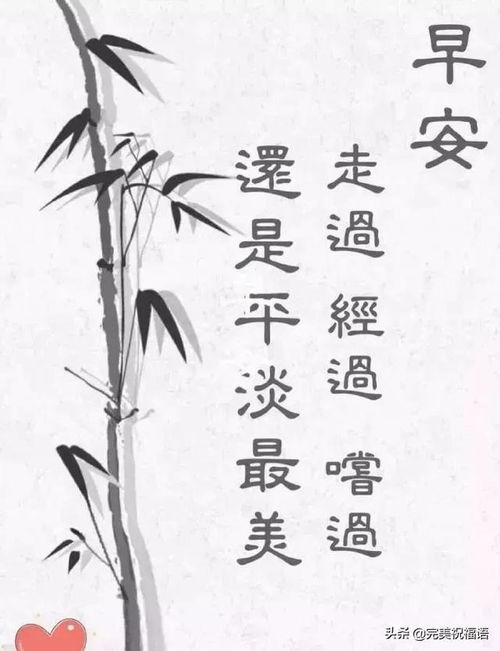 早安
走過 經過 嚐過
還是平淡最美
头条 @完美祝福语